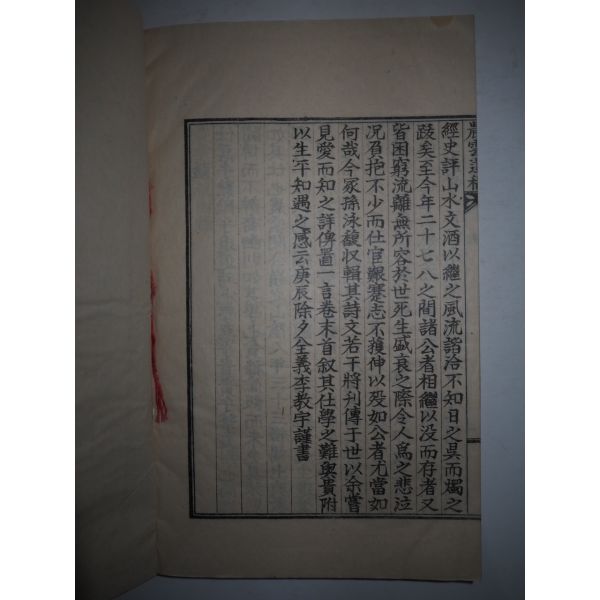 經史評山水文酒以繼之風流諧洽不知日之昃而燭之
跋矣至今年二十七八之間諸公者相繼以没而存者又
皆困窮流離無所容於世死生盛衰之際令人爲之悲泣
况負抱不少而仕宦艱蹇志不獲伸以殁如公者尤當如
何哉今冢孫泳馥収輯其詩文若干將刋傳于世以余嘗
見愛而知之詳俾置一言卷末首叙其仕學之難與貴附
以生平知遇之感云庚辰除夕全義李教宇謹書